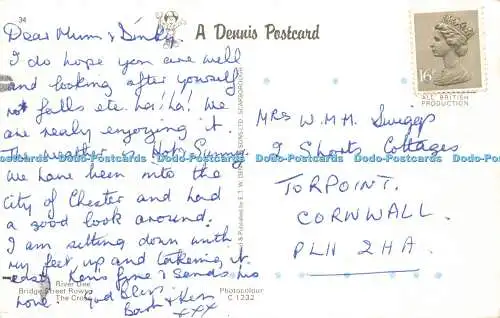 34
A Dennis Postcard
Dear Mum & Dinky.
I do hope you are well
and looking after yourself
no falls etc. ha! ha! We
are realy enjoying it.
The weather Hot, Sunny.
We have been into the
City of Chester and had
a good look around.
I am sitting down with
my feet up and takening it
easy. Ken's fine & sends his
love. God Bless
Barb & Ken
xxx
River Dee
Bridge Street Rows
The Cross
Photocolour
C 1232
16
ALL BRITISH
PRODUCTION
MRS W.M.H. Swiggs
9 Shorts Cottages
TORPOINT.
CORNWALL.
PL11 2HA.
Dodo-Postcards Dodo-Postcards Dodo-Postcards Dodo-Postcards Dodo-Postcards